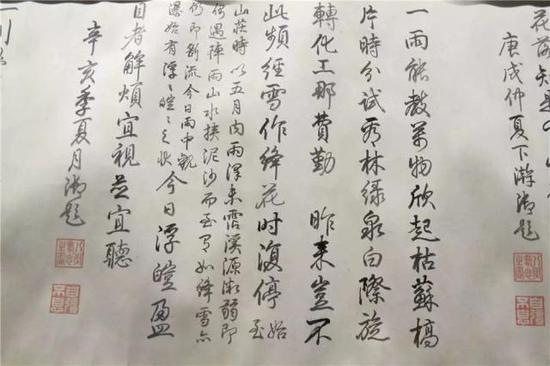 庚戌仲夏下澣御題
一雨能教萬物欣起枯蘇槁
片時分試看林緑泉白際旋
轉化工那費勤 昨來豈不
此頻經雪作絳花时復停 始至
山莊時以五月內雨澤未霑溪源微弱即
偶遇陣雨山水挾泥沙而至寫如絳雪亦
仍即斷流今日雨中觀
瀑始有浮〻皚〻之狀 今日浮皚盈
目者解煩宜視並宜聽
辛亥季夏月御題